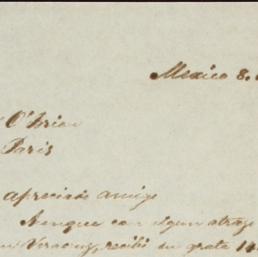 Mexico 8.
O'Brien
Paris
apreciado amigo
Aunque con algun atrazo
Veracruz, recibi su grata 14